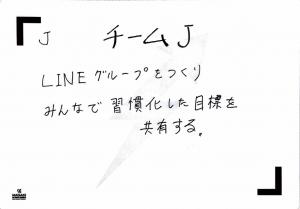 J
チームJ
LINEグループをつくり
みんなで習慣化した目標を
共有する。